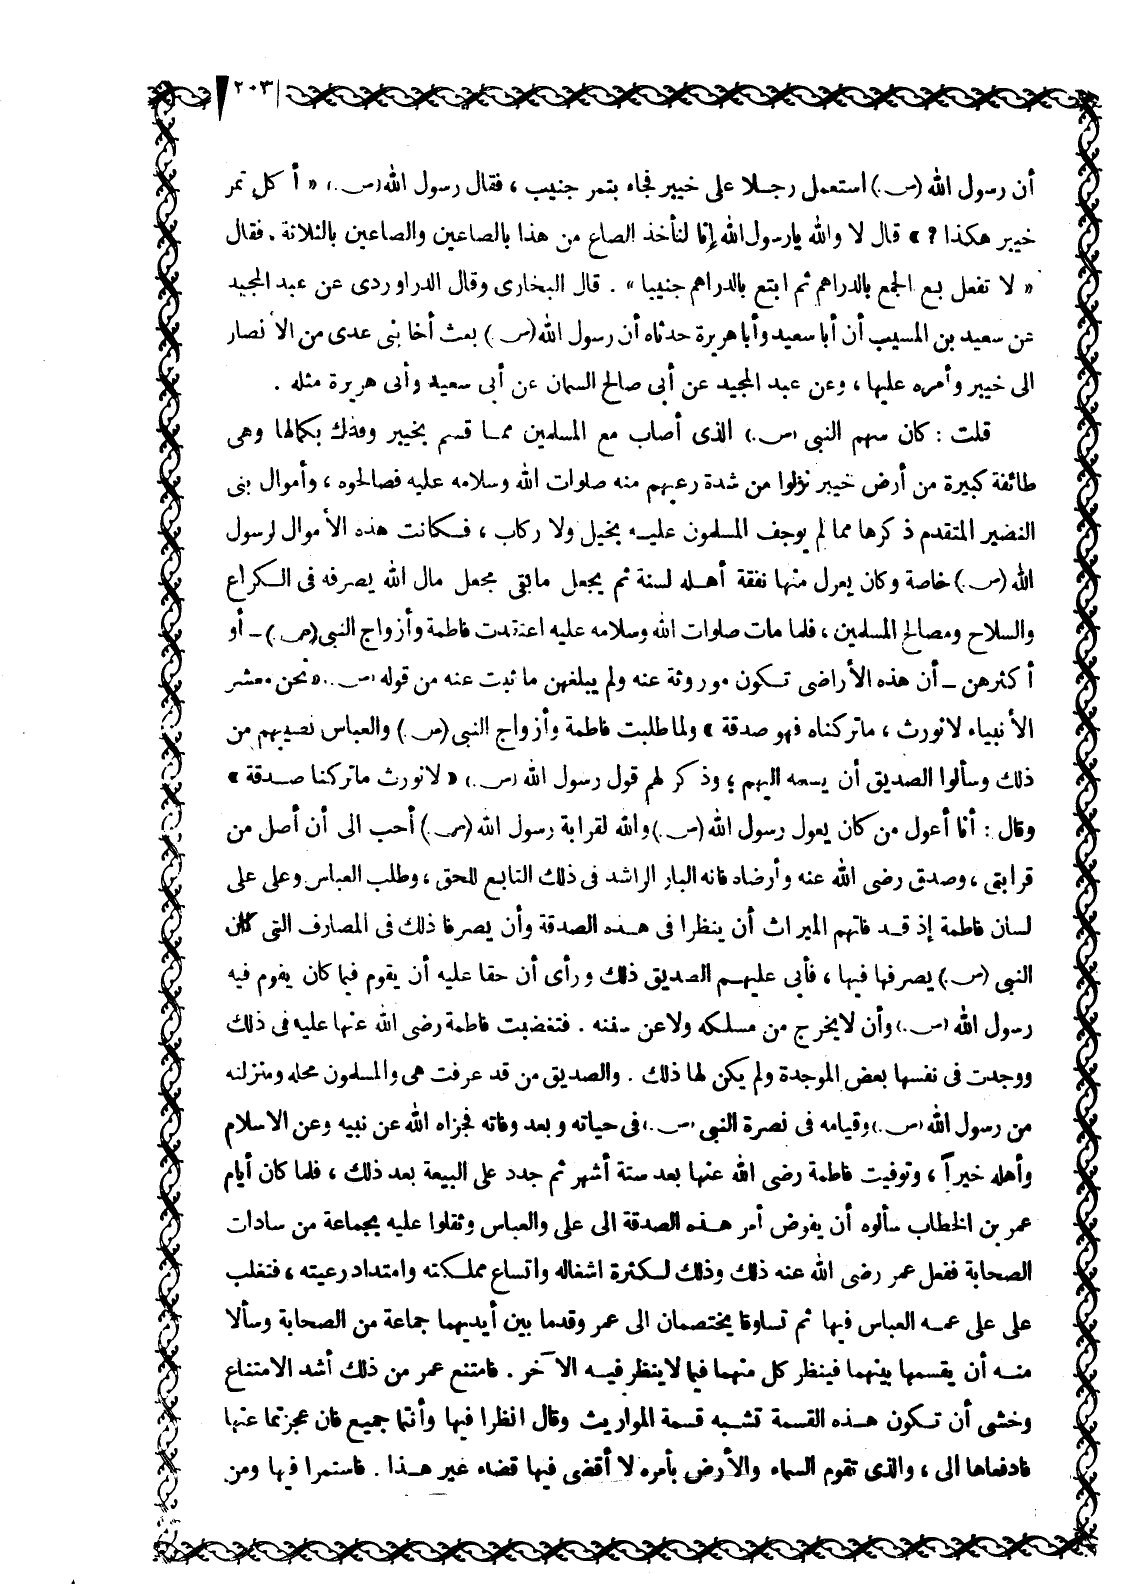 ٢٠٣
أن رسول الله (ص.) استعمل رجلا على خيبر فجاء بتمر جنيب ، فقال رسول الله (ص.) « أكل تمر
خيبر هكذا ? » قال لا والله يارسول الله إنا لنأخذ الصاع من هذا بالصاعين والصاعين بالثلاثة . فقال
« لا تفعل بع الجمع بالدراهم ثم ابتع بالدراهم جنيبا » . قال البخارى وقال الدراوردى عن عبد المجيد
عن سعيد بن المسيب أن أبا سعيد وأبا هريرة حدثاه أن رسول الله (ص.) بعث أخا بنى عدى من الأنصار
الى خيبر وأمره عليها ، وعن عبد المجيد عن أبى صالح السمان عن أبى سعيد وأبى هريرة مثله .
قلت : كان سهم النبى (ص.) الذى أصاب مع المسلمين ممـا قسم بخيبر وفدك بكمالها وهى
طائفة كبيرة من أرض خيبر نزلوا من شدة رعبهم منه صلوات الله وسلامه عليه فصالحوه ، وأموال بنى
النضير المتقدم ذكرها مما لم يوجف المسلمون عليـه بخيل ولا ركاب ، فـكانت هذه الأموال لرسول
الله (ص.) خاصة وكان يعزل منها نفقة أهـله لسنة ثم يجعل مابقى مجعل مال الله يصرفه فى الـكراع
والسلاح ومصالح المسلمين ، فلما مات صلوات الله وسلامه عليه اعتقدت فاطمة وأزواج النبى (ص.) ـ أو
أكثرهن ـ أن هذه الأراضى تـكون موروثة عنه ولم يبلغهن ما ثبت عنه من قوله (ص.) « نحن معشر
الأنبياء لانورث ، ماتركناه فهو صدقة » ولما طلبت فاطمة وأزواج النبى (ص.) والعباس نصيبهم من
ذلك وسألوا الصديق أن يسمه اليهم ؛ وذكر لهم قول رسول الله (ص.) « لانورث ماتركنا صـدقة »
وقال : أنا أعول من كان يعول رسول الله (ص.) والله لقرابة رسول الله (ص.) أحب الى أن أصل من
قرابتى ، وصدق رضى الله عنه وأرضاه فانه البار الراشد فى ذلك التابع للحق ، وطلب العباس وعلى على
لسان فاطمة إذ قـد فاتهم الميراث أن ينظرا فى هـذه الصدقة وأن يصرفا ذلك فى المصارف التى كان
النبى (ص.) يصرفها فيها ، فأبى عليهـم الصديق ذلك ورأى أن حقا عليه أن يقوم فيما كان يقوم فيه
رسول الله (ص.) وأن لايخرج من مسلكه ولاعن سننه . فتغضبت فاطمة رضى الله عنها عليه فى ذلك
ووجدت فى نفسها بعض الموجدة ولم يكن لها ذلك . والصديق من قد عرفت هى والمسلمون محله ومنزلته
من رسول الله (ص.) وقيامه فى نصرة النبى (ص.) فى حياته وبعد وفاته فجزاه الله عن نبيه وعن الاسلام
وأهله خيراً ، وتوفيت فاطمة رضى الله عنها بعد ستة أشهر ثم جدد على البيعة بعد ذلك ، فلما كان أيام
عمر بن الخطاب سألوه أن يفوض أمر هـذه الصدقة الى على والعباس وثقلوا عليه بجماعة من سادات
الصحابة ففعل عمر رضى الله عنه ذلك وذلك لـكثرة اشغاله واتساع مملـكته وامتداد رعيته ، فتغلب
على على عمـه العباس فيها ثم تساوقا يختصمان الى عمر وقدما بين أيديهما جماعة من الصحابة وسألا
منـه أن يقسمها بينهما فينظر كل منهما فيما لاينظر فيـه الآخر . فامتنع عمر من ذلك أشد الامتناع
وخشى أن تـكون هـذه القسمة تشبه قسمة المواريث وقال انظرا فيها وأنتما جميع فان عجزتما عنها
فادفعاها الى ، والذى تقوم السماء والأرض بأمره لا أقضى فيها قضاء غير هـذا . فاستمرا فيها ومن